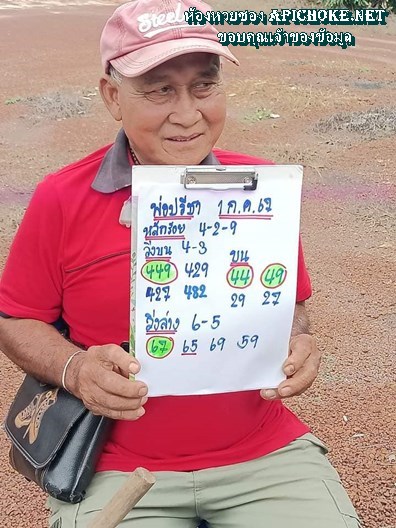 ห้องหวยของ APICHOKE.NET
ขอบคุณเจ้าของข้อมูล
Steel
พ่อปรีชา 1 ก.ค. 67
หลักร้อย 4-2-9
วิ่งบน 4-3
บน
449 429 44 49
427 482 29 27
วิ่งล่าง 6-5
67 65 69 59